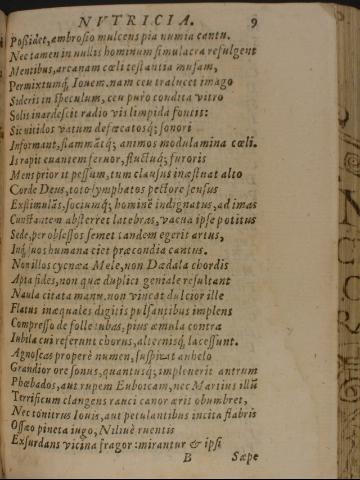 NVTRICIA. 9
Possidet, ambrosio mulcens pia numia cantu.
Nec tamen in nullis hominum simulacra refulgent
Mentibus, arcanam cœli testantia musam,
Permixtumq́; Iouem. nam ceu tralucet imago
Sideris in speculum, ceu puro condita vitro
Solis inardescit radio vis limpida fontis:
Sic nitidos vatum defæcatosq́; sonori
Informant, flammātq́; animos modulamina cœli.
Is rapit euantem feruor, fluctuq́; furoris
Mens prior it pessum, tum clausus inæstuat alto
Corde Deus, toto lymphatos pectore sensus
Exstimulās, sociumq́; hominē indignatus, ad imas
Cunctantem absterret latebras, vacua ipse potitus
Sede, per obsessos semet tandem egerit artus,
Inq́; suos humana ciet præcordia cantus.
Non illos cycnæa Mele, non Dædala chordis
Apta fides, non quæ duplici geniale resultant
Naula citata manu, non vincat dulcior ille
Flatus inæquales digitis pulsantibus implens
Compresso de folle tubas, pius æmula contra
Iubila cui referunt chorus, alternisq́; lacessunt.
Agnoscas properè numen, suspirat anhelo
Grandior ore sonus, quantusq́; impleuerit antrum
Phœbados, aut rupem Euboicam, nec Martius illū
Terrificum clangens rauci canor æris obumbret,
Nec tonitrus Iouis, aut petulantibus incita flabris
Ossæo pineta iugo, Niliuè ruentis
Exsurdans vicina fragor: mirantur & ipsi
B Sæpe